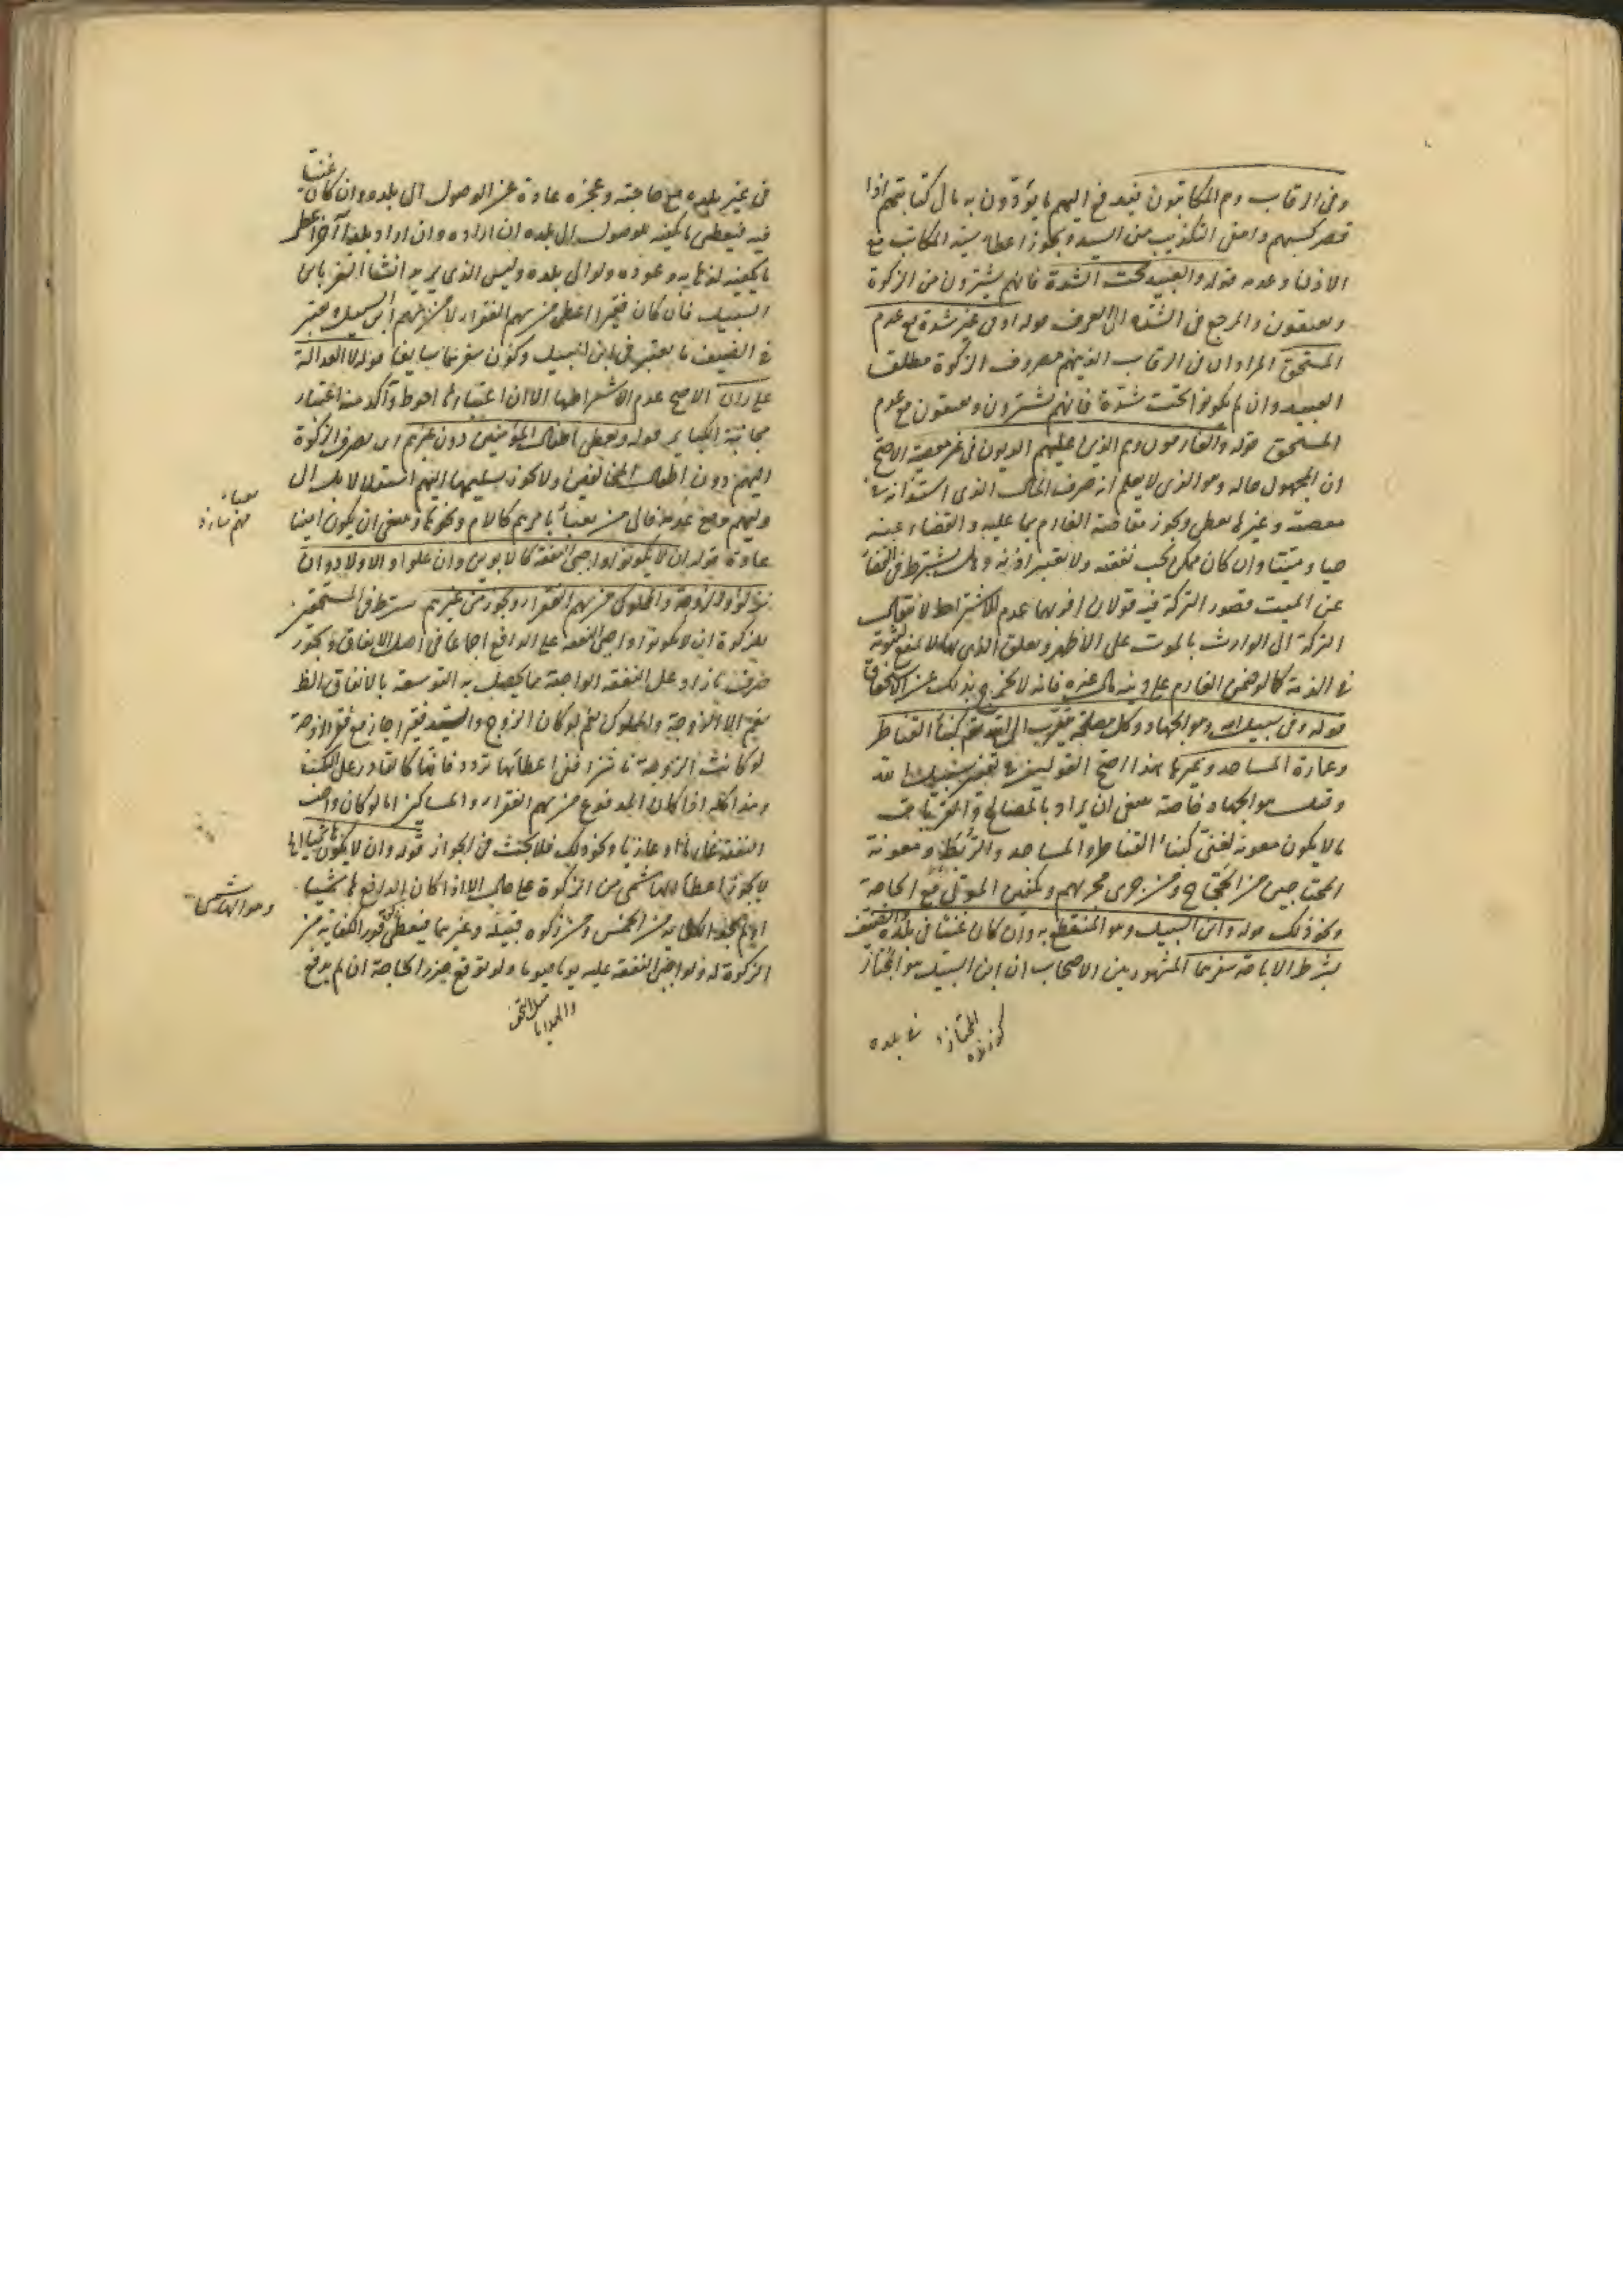 وفي الرقاب وهم المكاتبون فيدفع اليهم ما يؤدون به مال كتابتهم اذا
قصر كسبهم وامتنى التكذيب من السيد ويجوز اعطاء سيد المكاتب مع
الاذن وعدمه قوله والعبيد تحت الشدة فانهم يشترون من الزكوة
ويعتقون والمرجع في الشدة الى العرف قوله او في غير شدة مع عدم
المستحق المراد ان في الرقاب الذين هم مصروف الزكوة مطلق
العبيد وان لم يكونوا تحت شدة فانهم يشترون ويعتقون مع عدم
المستحق قوله والغارمون وهم الذين عليهم الديون في غير معصية الاصح
ان المجهول حاله وهو الذي لا يعلم انه صرف المال الذي استدانه في
معصية وغيرها يعطى ويجوز مقاصة الغارم بما عليه والقضاء عنه
حيا وميتا وان كان ممن يجب نفقته ولا يعتبر اذنه وهل يشترط في القضاء
عن الميت قصور التركة فيه قولان اقربهما عدم الاشتراط لانتقال
التركة الى الوارث بالموت على الاظهر وتعلق الدين بها لا يمنع ثبوته
في الذمة كما لو ضمن الغارم على دينه مال غيره فانه لا يخرج بذلك عن الاستحقاق
قوله وفي سبيل الله وهو الجهاد وكل مصلحة يتقرب الى الله تعالى كبناء القناطر
وعمارة المساجد وغيرها هذا اصح القولين في تفسير سبيل الله
وقيل هو الجهاد خاصة ينبغي ان يراد بالمصالح والقربات
ما لا يكون معونة لغني كبناء القناطر والمساجد والربط ومعونة
المحتاجين من الحجاج ومن جرى مجريهم وتكفين الموتى مع الحاجة
ونحو ذلك قوله وابن السبيل وهو المنقطع به وان كان غنيا في بلده والضيف
بشرط الاباحة سفرهما المشهور بين الاصحاب ان ابن السبيل هو المجتاز
في بلده
في غير بلده مع حاجته وعجزه عادة عن الوصول الى بلده وان كان غنيا
فيه فيعطى ما يكفيه للوصول الى بلده ان اراده وان اراد بلدا آخر اعطى
ما يكفيه لذهابه وعوده ولو الى بلده وليس الذي يريد انشاء السفر بابن
السبيل فان كان فقيرا اعطى من سهم الفقراء لا من سهم ابن السبيل ويعتبر
في الضيف ما يعتبر في ابن السبيل وكون سفرهما سايغا قوله لا العدالة
على راي الاصح عدم اشتراطها الا ان اعتبارها احوط وآكد منه اعتبار
مجانبة الكباير قوله ويعطى اطفال المؤمنين دون غيرهم اي يصرف الزكوة
اليهم دون اطفال المخالفين ولا يجوز تسليمها اليهم استقلالا بل الى
وليهم ومع عدمه فالى من يعتنى بامرهم كالام ونحوها وينبغي ان يكون امينا
عادة قوله ان لا يكونوا واجبي النفقة كالابوين وان علوا والاولاد وان
نزلوا والزوجة والمملوك من سهم الفقراء ويجوز من غيرهم يشترط في المستحقين
للزكوة ان لا يكونوا واجبي النفقة على الدافع اجماعا في اصل الانفاق ويجوز
صرف ما زاد على النفقة الواجبة مما يحصل به التوسعة بالانفاق الظ
نعم الا الزوجة والمملوك نعم لو كان الزوج والسيد فقيرا جاز مع فقر الزوجة
لو كانت الزوجة ناشزا ففي اعطائها تردد فانها كالقادر على التكسب
وهذا كله اذا كان المدفوع من سهم الفقراء والمساكين اما لو كان واجب
النفقة غارما او غازيا ونحو ذلك فلا بحث في الجواز قوله وان لا يكون هاشميا
لا يجوز اعطاء الهاشمي من الزكوة على حال الا اذا كان الدافع هاشميا
من الخمس ومن زكوة قبيله وغيرهما فيعطى قدر الكفاية من
الزكوة له ولواجبي النفقة عليه يوما فيوما ولو توقع ضرر الحاجة ان لم يدفع